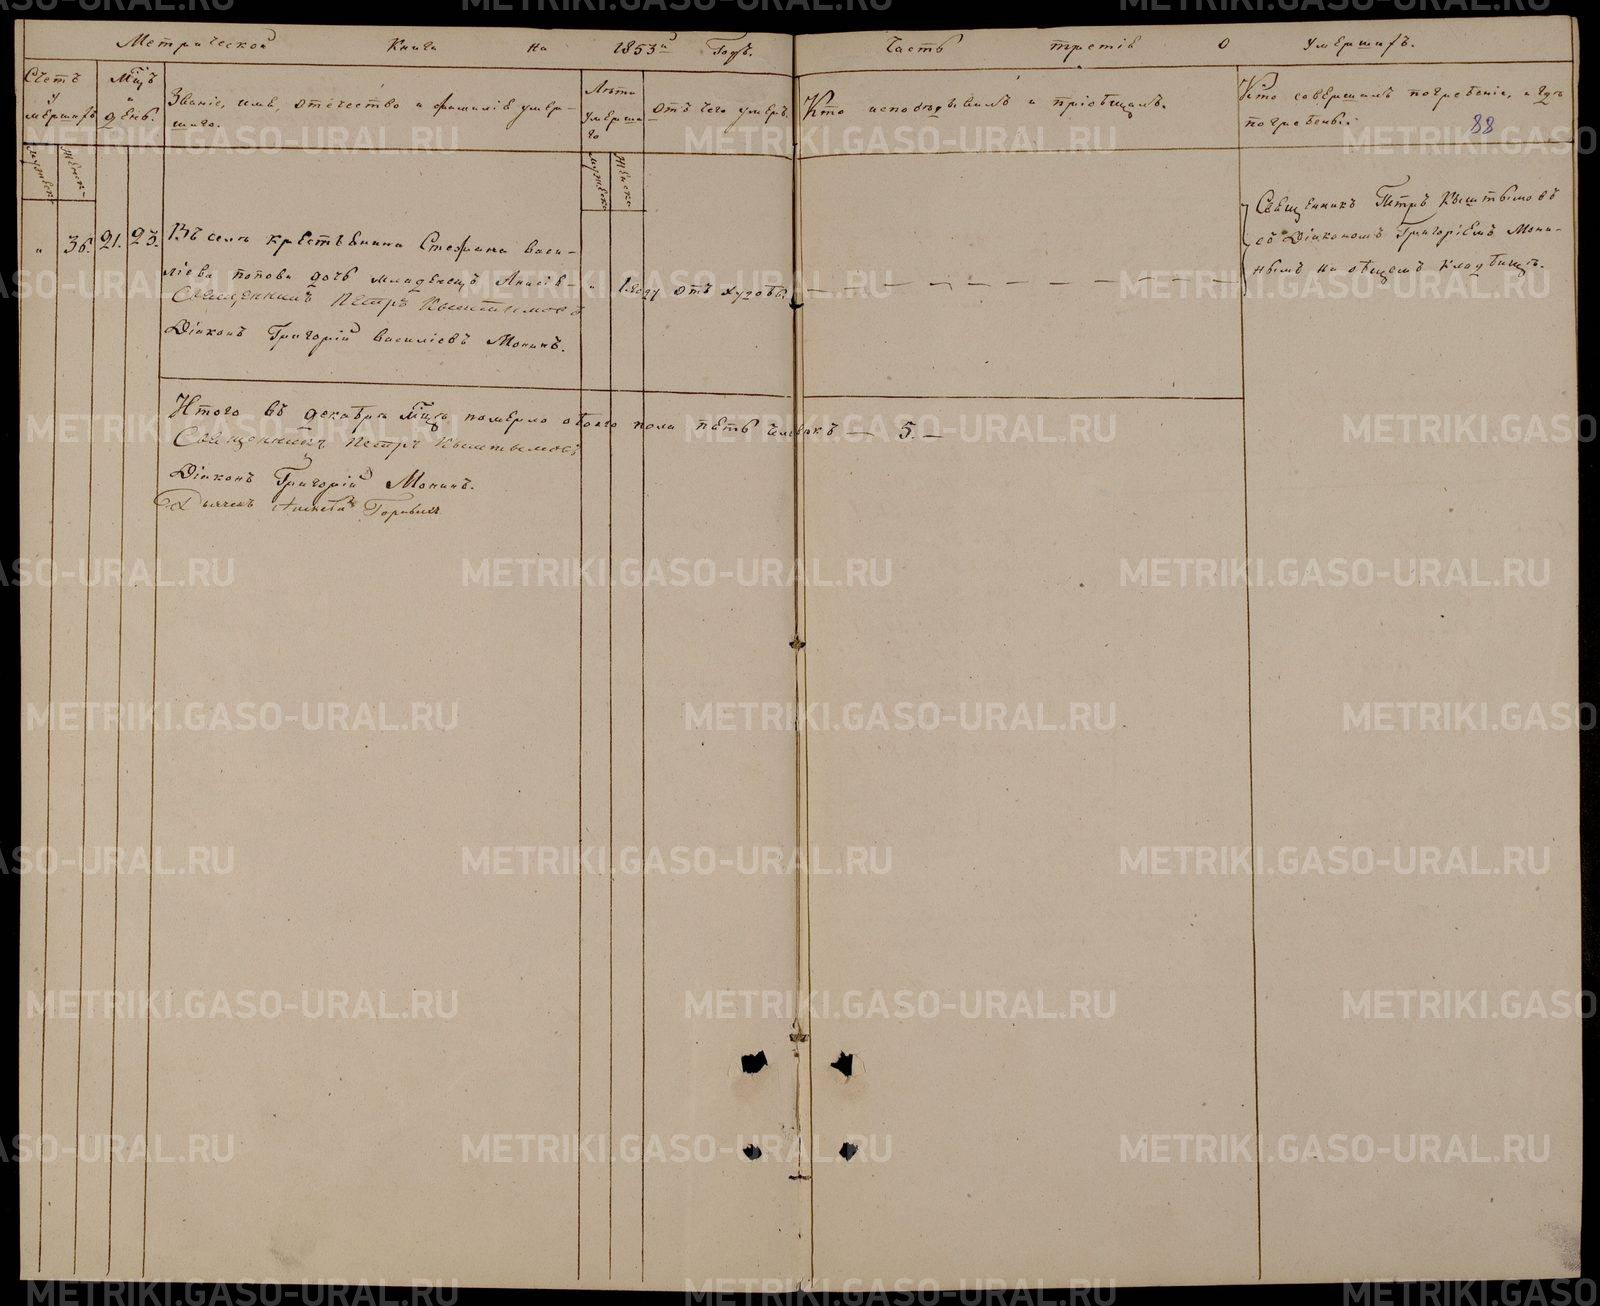 Метрической Книги на 1853й Годъ. Часть третія о умершихъ.
Счетъ умершихъ
Мцъ и день.
Званіе, имя, отечество и фамилія умер-
шаго.
Лѣта умершаго
отъ чего умеръ.
Кто исповѣдывалъ и пріобщалъ.
Кто совершалъ погребеніе, и гдѣ
погребены.
88
мужеск. женск.
мужеска женска
" 36. 21. 23. Въ селѣ крестьянина Стефана Васи-
ліева Попова дочь младенецъ Анисія — " 1 году отъ худобы
Священникъ Петръ Кыштымовъ
Діаконъ Григорій Василіевъ Монинъ.
Священникъ Петръ Кыштымовъ
съ Діакономъ Григоріемъ Мони-
нымъ на общемъ кладбищѣ.
Итого въ декабрѣ мцѣ померло обоего пола пять человѣкъ — 5. —
Священникъ Петръ Кыштымовъ
Діаконъ Григорій Монинъ.
Дьячекъ
METRIKI.GASO-URAL.RU